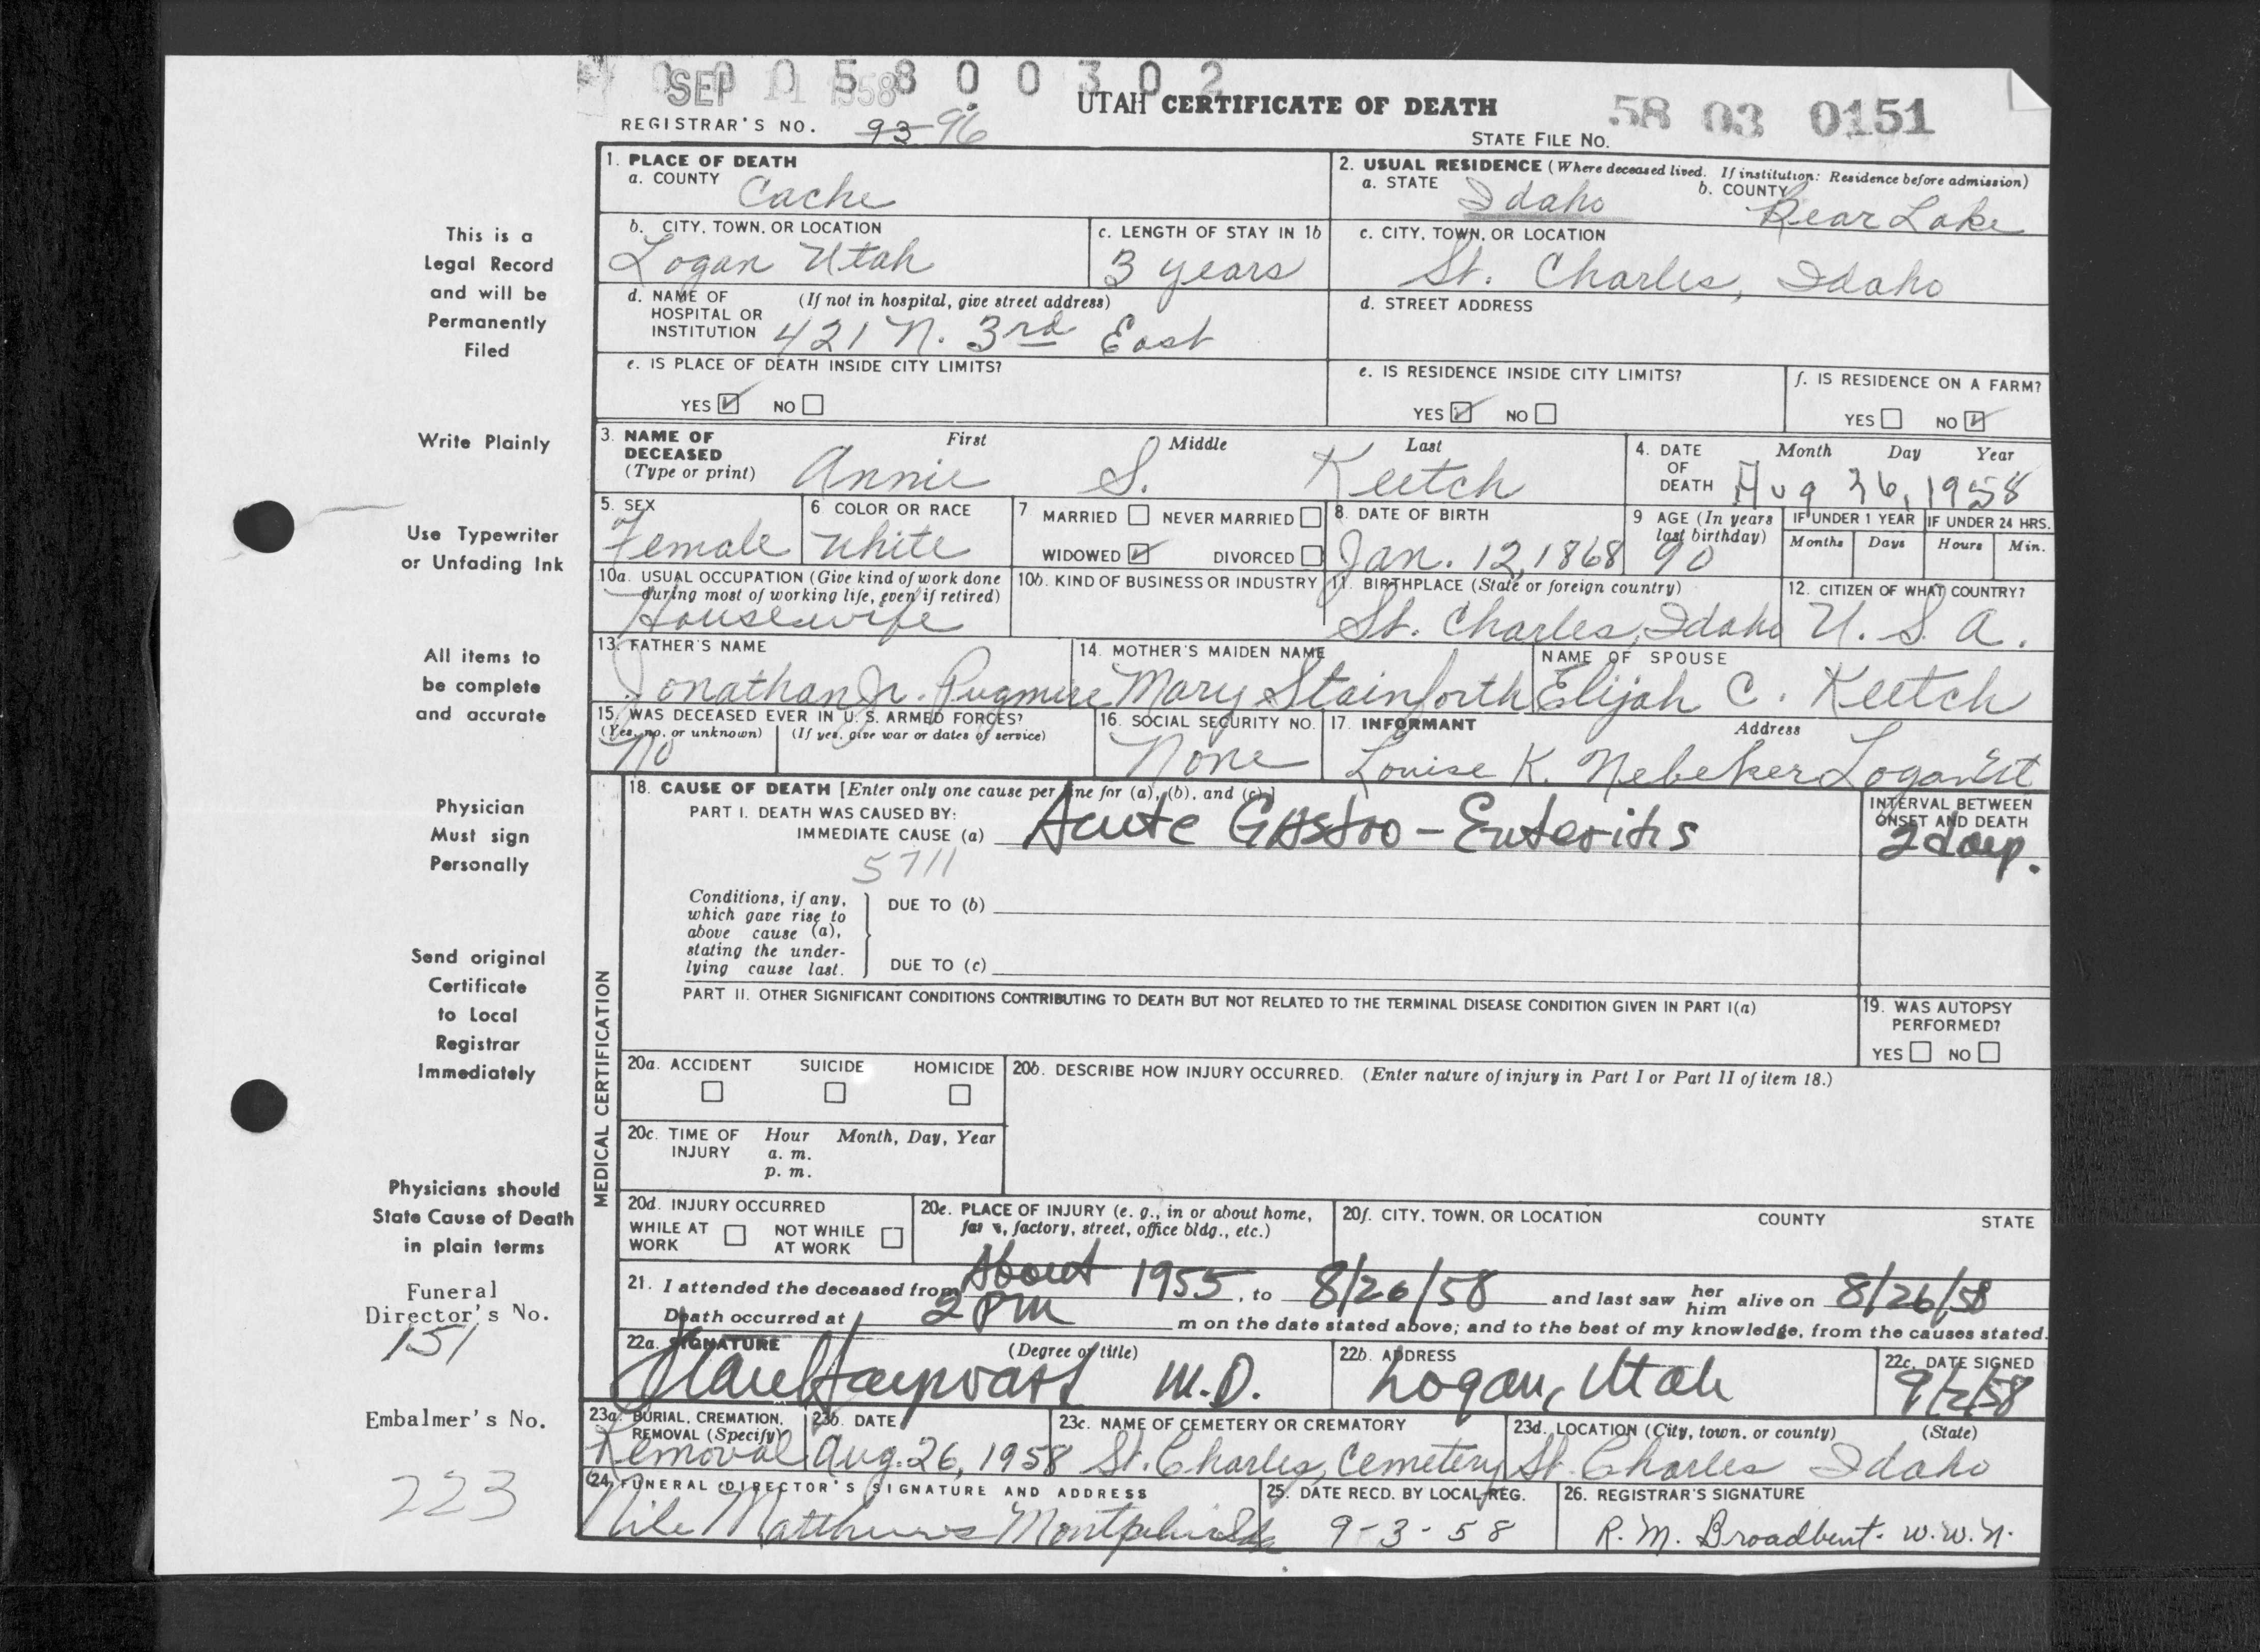 0 0 0 5 8 0 0 3 0 2
SEP 11 1958
UTAH CERTIFICATE OF DEATH
58 03 0151
REGISTRAR'S NO. 93 96
STATE FILE NO.
1. PLACE OF DEATH
a. COUNTY Cache
2. USUAL RESIDENCE (Where deceased lived. If institution: Residence before admission)
a. STATE Idaho b. COUNTY Bear Lake
b. CITY, TOWN, OR LOCATION
Logan Utah
c. LENGTH OF STAY IN 1b
3 years
c. CITY, TOWN, OR LOCATION
St. Charles, Idaho
d. NAME OF HOSPITAL OR INSTITUTION (If not in hospital, give street address)
421 N. 3rd East
d. STREET ADDRESS
e. IS PLACE OF DEATH INSIDE CITY LIMITS?
YES NO
e. IS RESIDENCE INSIDE CITY LIMITS?
YES NO
f. IS RESIDENCE ON A FARM?
YES NO
3. NAME OF DECEASED (Type or print)
First Middle Last
Annie S. Keetch
4. DATE OF DEATH
Month Day Year
Aug 26, 1958
5. SEX
Female
6 COLOR OR RACE
White
7 MARRIED NEVER MARRIED
WIDOWED DIVORCED
8. DATE OF BIRTH
Jan. 12, 1868
9 AGE (In years last birthday)
90
IF UNDER 1 YEAR
Months Days
IF UNDER 24 HRS.
Hours Min.
10a. USUAL OCCUPATION (Give kind of work done during most of working life, even if retired)
Housewife
10b. KIND OF BUSINESS OR INDUSTRY
11. BIRTHPLACE (State or foreign country)
St. Charles, Idaho
12. CITIZEN OF WHAT COUNTRY?
U. S. A.
13. FATHER'S NAME
Jonathan Jr. Pugmire
14. MOTHER'S MAIDEN NAME
Mary Stainforth
NAME OF SPOUSE
Elijah C. Keetch
15. WAS DECEASED EVER IN U. S. ARMED FORCES?
(Yes, no, or unknown) (If yes, give war or dates of service)
No
16. SOCIAL SECURITY NO.
None
17. INFORMANT Address
Louise K. Nebeker Logan Ut
MEDICAL CERTIFICATION
18. CAUSE OF DEATH [Enter only one cause per line for (a), (b), and (c).]
PART I. DEATH WAS CAUSED BY:
IMMEDIATE CAUSE (a) Acute Gastro-Enteritis
5711
INTERVAL BETWEEN ONSET AND DEATH
2 days.
Conditions, if any, which gave rise to above cause (a), stating the underlying cause last.
DUE TO (b)
DUE TO (c)
PART II. OTHER SIGNIFICANT CONDITIONS CONTRIBUTING TO DEATH BUT NOT RELATED TO THE TERMINAL DISEASE CONDITION GIVEN IN PART I(a)
19. WAS AUTOPSY PERFORMED?
YES NO
20a. ACCIDENT SUICIDE HOMICIDE
20b. DESCRIBE HOW INJURY OCCURRED. (Enter nature of injury in Part I or Part II of item 18.)
20c. TIME OF INJURY Hour Month, Day, Year
a. m.
p. m.
20d. INJURY OCCURRED
WHILE AT WORK NOT WHILE AT WORK
20e. PLACE OF INJURY (e. g., in or about home, farm, factory, street, office bldg., etc.)
20f. CITY, TOWN, OR LOCATION COUNTY STATE
21. I attended the deceased from About 1955, to 8/26/58 and last saw her him alive on 8/26/58
Death occurred at 2 PM m on the date stated above; and to the best of my knowledge, from the causes stated.
22a. SIGNATURE (Degree or title)
M.D.
22b. ADDRESS
Logan, Utah
22c. DATE SIGNED
9/2/58
23a. BURIAL, CREMATION, REMOVAL (Specify)
Removal
23b. DATE
Aug. 26, 1958
23c. NAME OF CEMETERY OR CREMATORY
St. Charles, Cemetery
23d. LOCATION (City, town, or county) (State)
St. Charles Idaho
24. FUNERAL DIRECTOR'S SIGNATURE AND ADDRESS
Nile Matthews
25. DATE RECD. BY LOCAL REG.
9-3-58
26. REGISTRAR'S SIGNATURE
R. M. Broadbent. w.w.n.
This is a
Legal Record
and will be
Permanently
Filed
Write Plainly
Use Typewriter
or Unfading Ink
All items to
be complete
and accurate
Physician
Must sign
Personally
Send original
Certificate
to Local
Registrar
Immediately
Physicians should
State Cause of Death
in plain terms
Funeral
Director's No.
151
Embalmer's No.
223